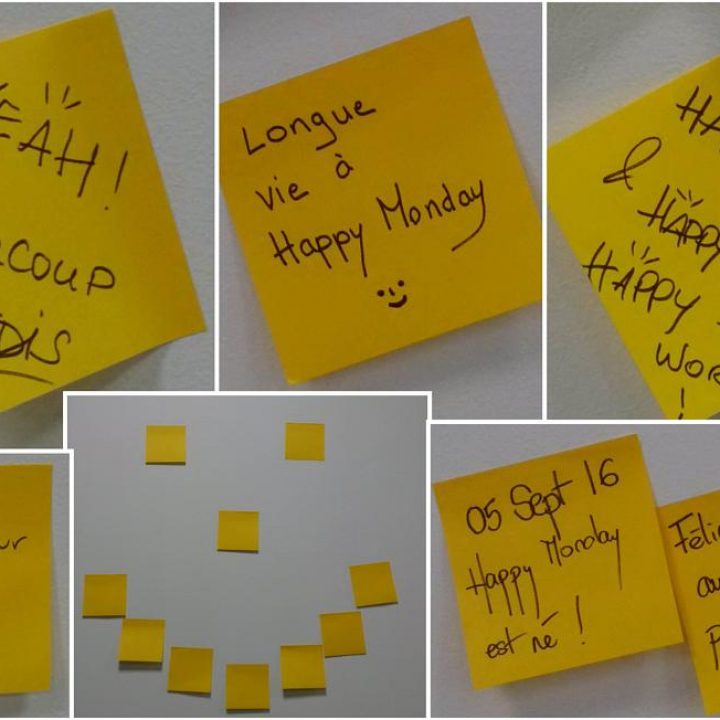 EAH!
COUP
DIS
Longue
vie à
Happy Monday
HA
&
HAPP
HAPPY
WOR
!
ur
05 Sept 16
Happy Monday
est né !
Féli